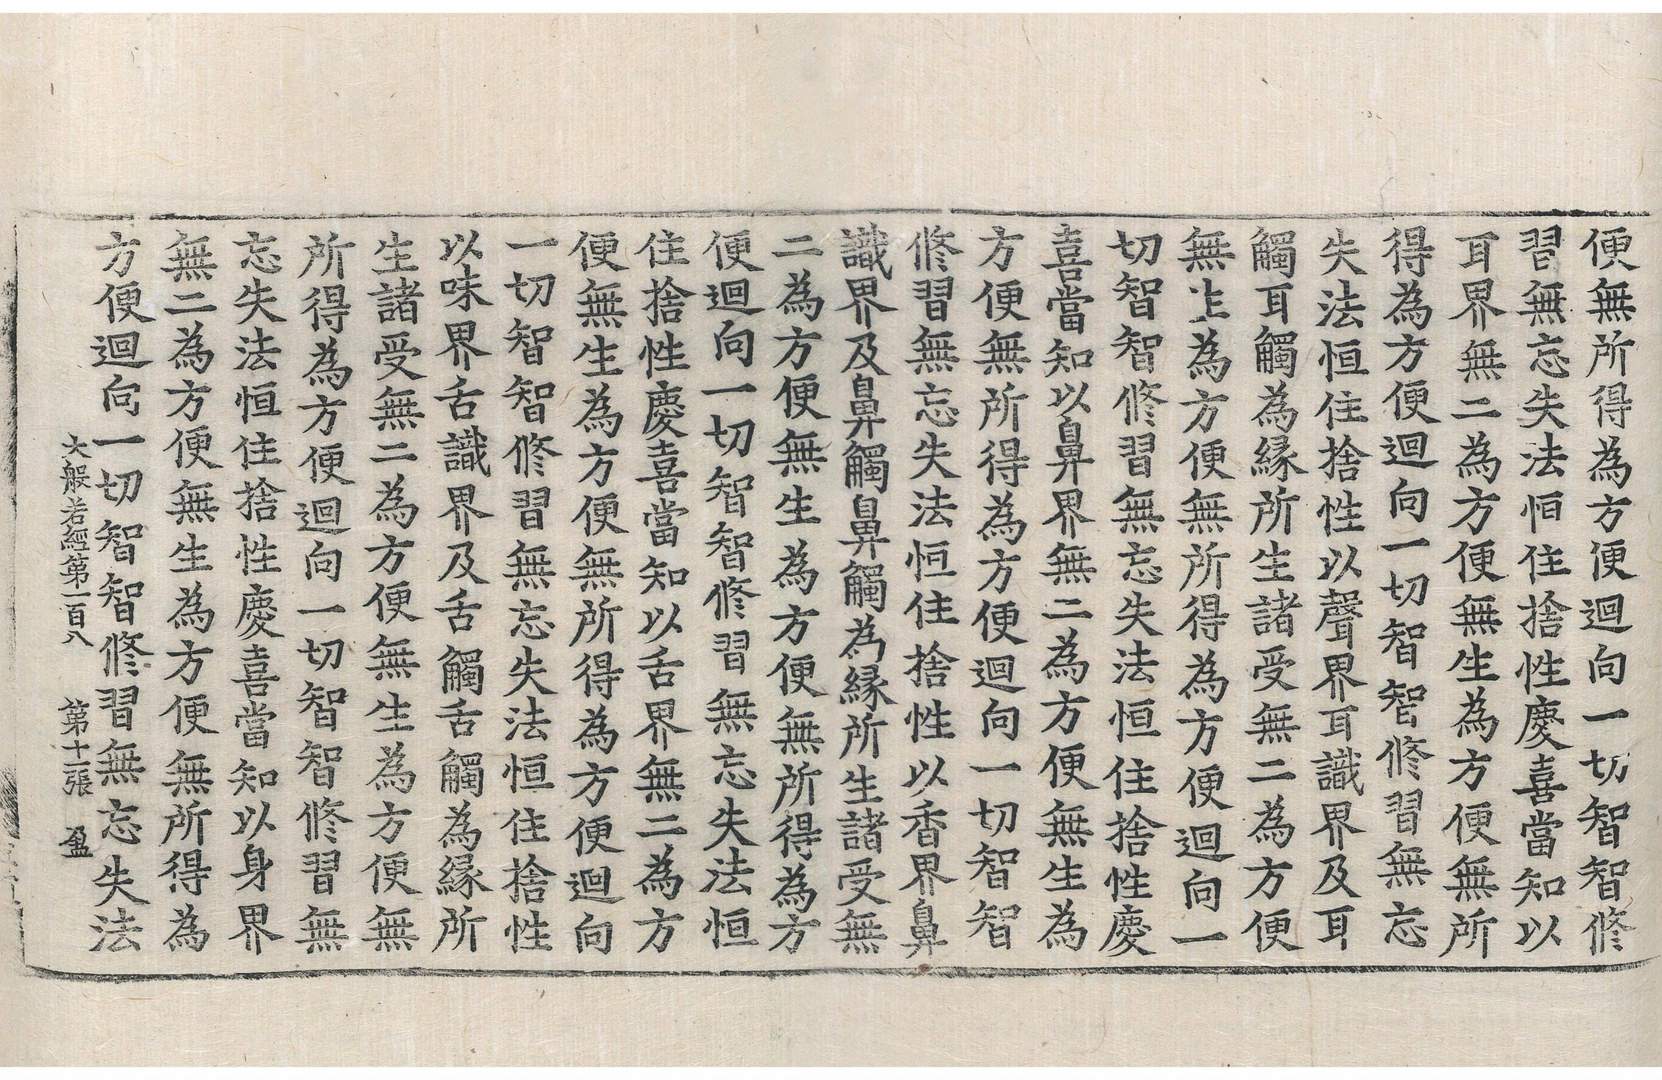 便無所得為方便迴向一切智智修
習無忘失法恒住捨性慶喜當知以
耳界無二為方便無生為方便無所
得為方便迴向一切智智修習無忘
失法恒住捨性以聲界耳識界及耳
觸耳觸為緣所生諸受無二為方便
無生為方便無所得為方便迴向一
切智智修習無忘失法恒住捨性慶
喜當知以鼻界無二為方便無生為
方便無所得為方便迴向一切智智
修習無忘失法恒住捨性以香界鼻
識界及鼻觸鼻觸為緣所生諸受無
二為方便無生為方便無所得為方
便迴向一切智智修習無忘失法恒
住捨性慶喜當知以舌界無二為方
便無生為方便無所得為方便迴向
一切智智修習無忘失法恒住捨性
以味界舌識界及舌觸舌觸為緣所
生諸受無二為方便無生為方便無
所得為方便迴向一切智智修習無
忘失法恒住捨性慶喜當知以身界
無二為方便無生為方便無所得為
方便迴向一切智智修習無忘失法
大般若經第一百八 第十一張 盈